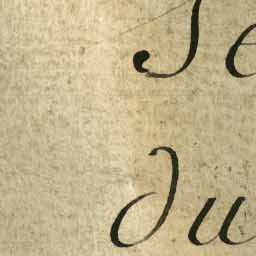 Se
du